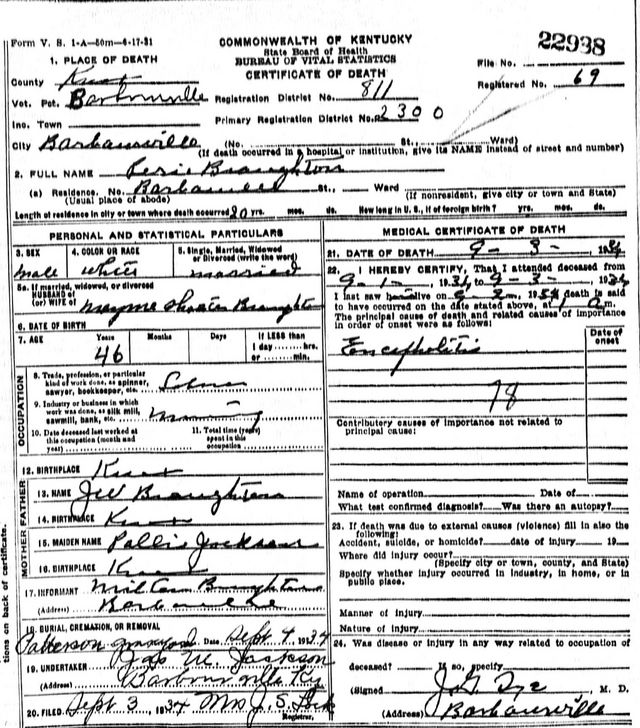 Form V. S. 1-A-50m-4-17-31
COMMONWEALTH OF KENTUCKY
State Board of Health
BUREAU OF VITAL STATISTICS
CERTIFICATE OF DEATH
22938
File No.
Registered No. 69
1. PLACE OF DEATH
County Knox
Vot. Pct. Barbourville Registration District No. 811
Inc. Town Primary Registration District No. 2300
City Barbourville (No. St., Ward)
(If death occurred in a hospital or institution, give its NAME instead of street and number)
2. FULL NAME Broughton
(a) Residence. No. St., Ward
(Usual place of abode) (If nonresident, give city or town and State)
Length of residence in city or town where death occurred 20 yrs. mos. ds. How long in U. S., if of foreign birth? yrs. mos. ds.
PERSONAL AND STATISTICAL PARTICULARS
3. SEX male
4. COLOR OR RACE white
5. Single, Married, Widowed or Divorced (write the word) married
5a. If married, widowed, or divorced
HUSBAND of
(or) WIFE of Broughton
6. DATE OF BIRTH
7. AGE Years 46 Months Days If LESS than
1 day hrs.
or min.
OCCUPATION
8. Trade, profession, or particular
kind of work done, as spinner,
sawyer, bookkeeper, etc.
9. Industry or business in which
work was done, as silk mill,
sawmill, bank, etc.
10. Date deceased last worked at
this occupation (month and
year)
11. Total time (years)
spent in this
occupation
12. BIRTHPLACE Knox
MOTHER FATHER
13. NAME Broughton
14. BIRTHPLACE Knox
15. MAIDEN NAME Jackson
16. BIRTHPLACE Knox
17. INFORMANT Milton Broughton
(Address) Barbourville
18. BURIAL, CREMATION, OR REMOVAL
Patterson graveyard Date Sept 4, 1934
19. UNDERTAKER M. Jackson
Barbourville Ky
20. FILED Sept 3, 1934 Mrs J. S.
Registrar.
MEDICAL CERTIFICATE OF DEATH
21. DATE OF DEATH 9-3-, 1934
22. I HEREBY CERTIFY, That I attended deceased from
9-1-, 1934, to 9-3-, 1934
I last saw him alive on 9-2, 1934 death is said
to have occurred on the date stated above, at m.
The principal cause of death and related causes of importance
in order of onset were as follows:
Date of onset
Encephalitis
78
Contributory causes of importance not related to
principal cause:
Name of operation Date of
What test confirmed diagnosis? Was there an autopsy?
23. If death was due to external causes (violence) fill in also the
following:
Accident, suicide, or homicide? date of injury 19
Where did injury occur?
(Specify city or town, county, and State)
Specify whether injury occurred in industry, in home, or in
public place.
Manner of injury
Nature of injury
24. Was disease or injury in any way related to occupation of
deceased? If so, specify
(Signed J. G. Tye M. D.
(Address) Barbourville
tions on back of certificate.